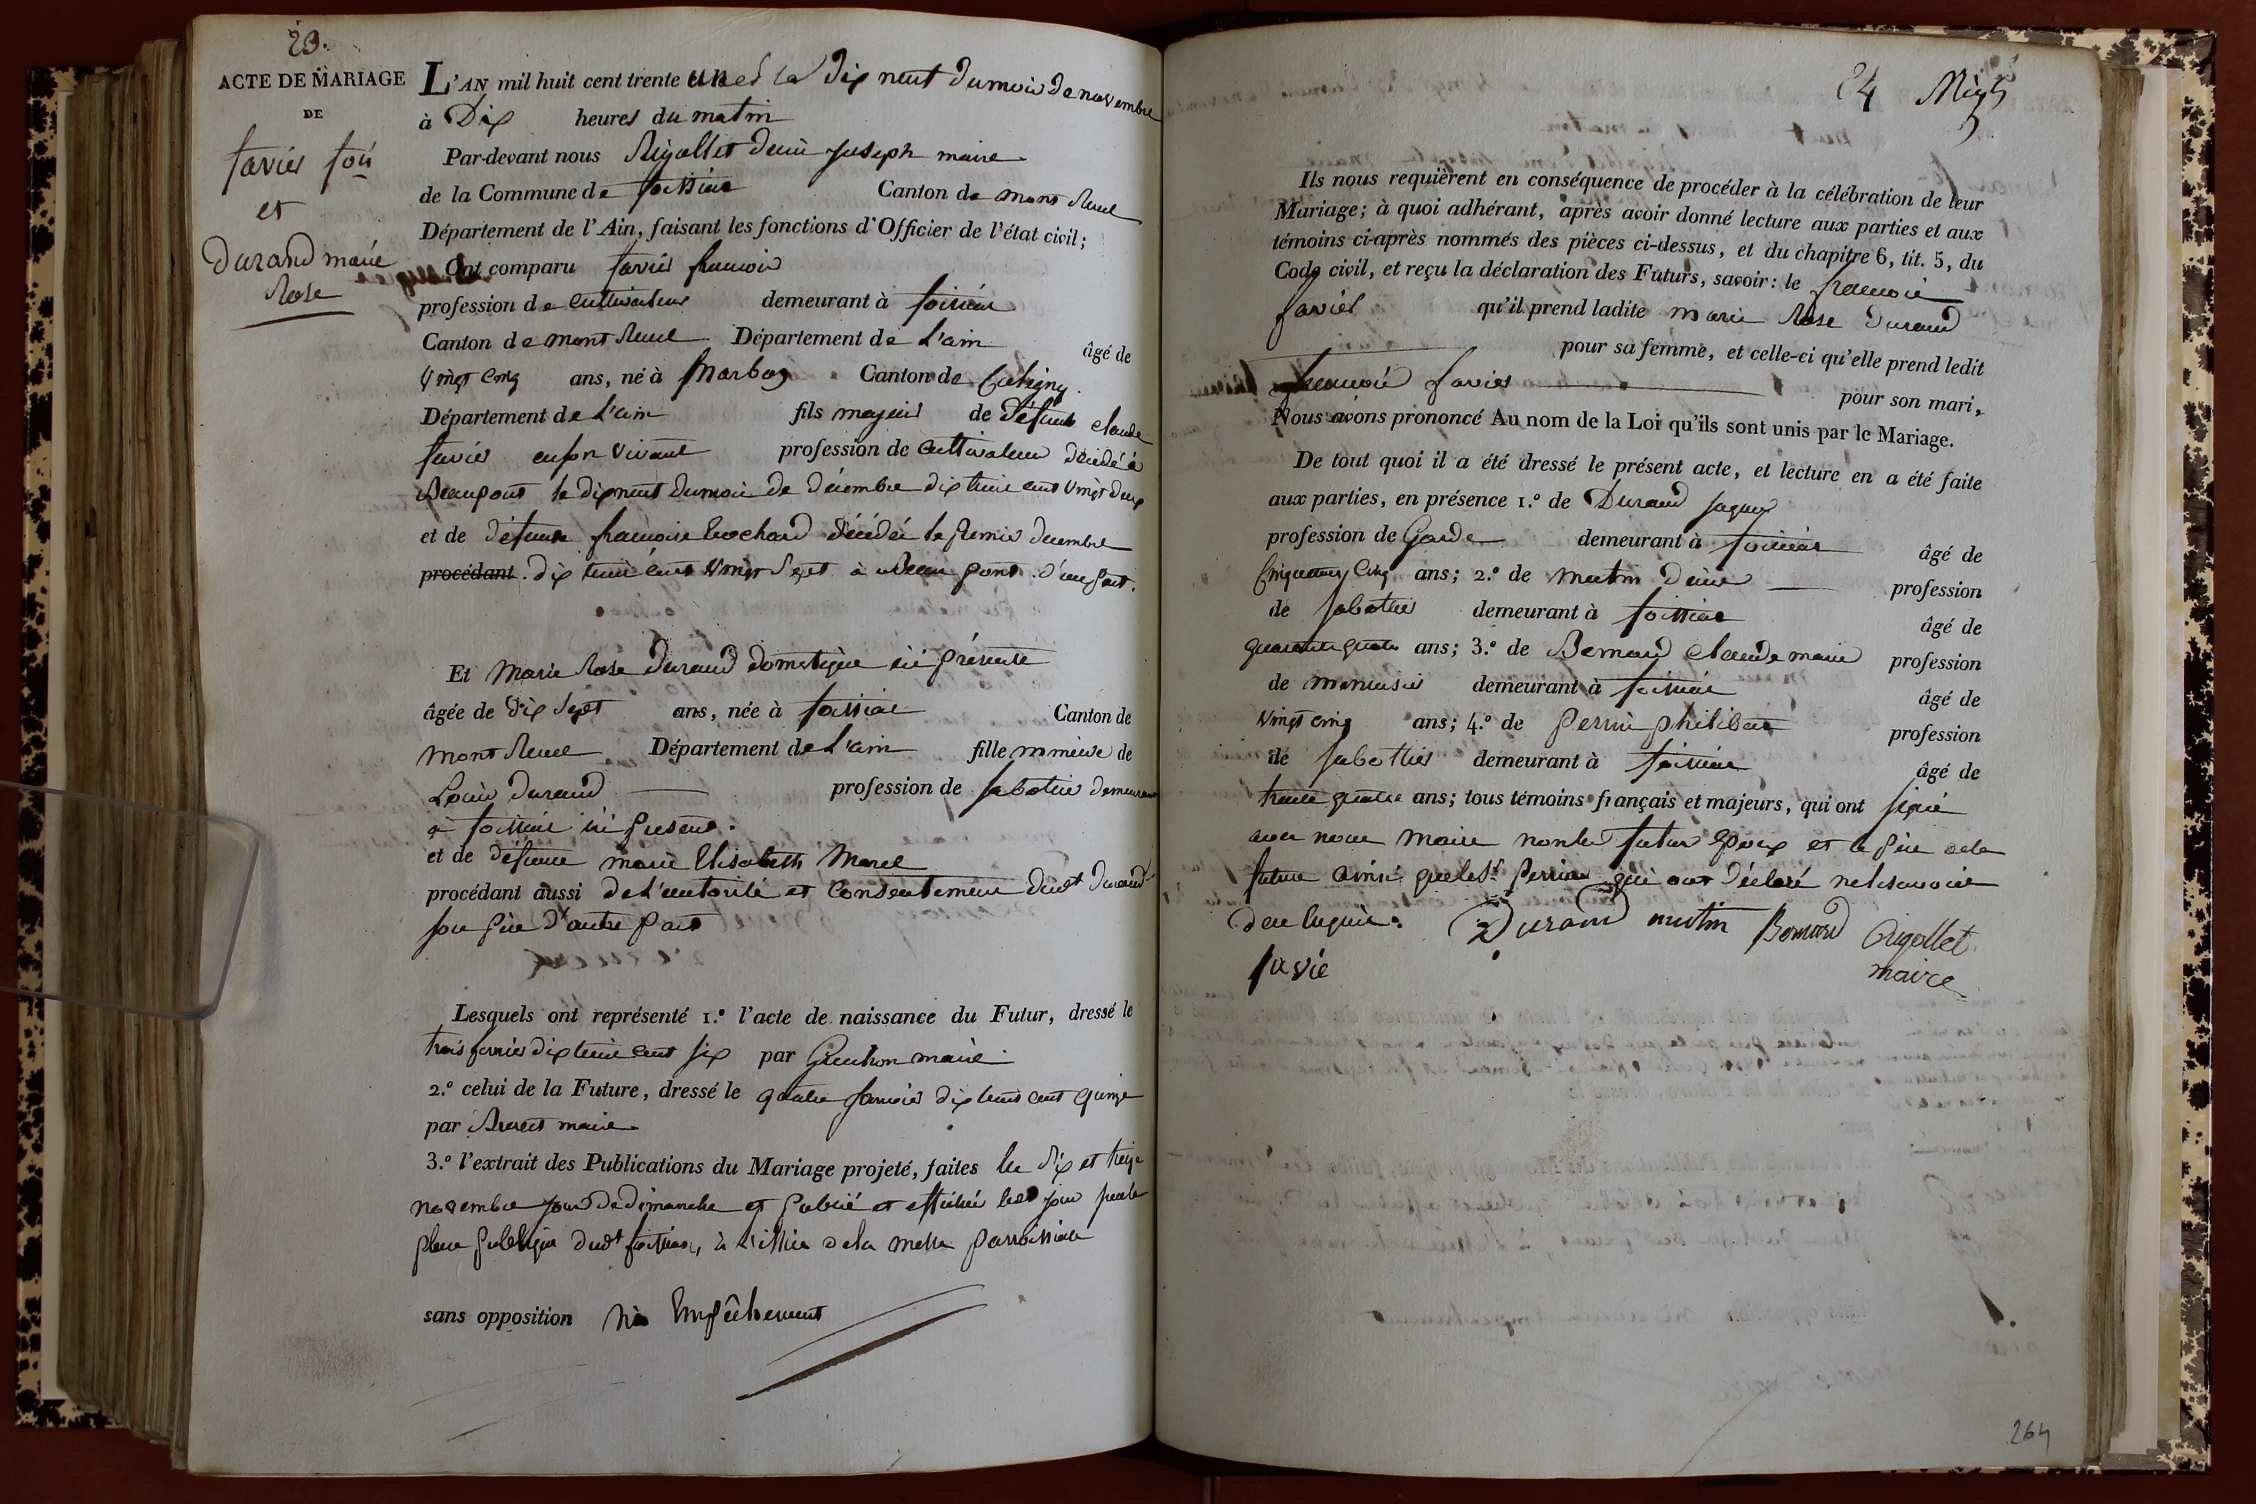 23.
ACTE DE MARIAGE
DE
favier fois
et
Durand marie
Rose
L'AN mil huit cent trente un et le dix neuf du mois de novembre
à Dix heures du matin
Par-devant nous Rigollet Denis Joseph maire
de la Commune de foissiat Canton de mont Revel
Département de l'Ain, faisant les fonctions d'Officier de l'état civil;
Ont comparu favier francois
profession de cultivateur demeurant à foissiat
Canton de mont Revel Département de L'ain âgé de
vingt cinq ans, né à Marboz Canton de Coligny
Département de L'ain fils majeur de défunt claude
favier en son vivant profession de cultivateur décédé à
Beaupont le dix neuf du mois de décembre dix huit cent vingt deux
et de défunte francoise décédée le premier decembre
procédant. dix huit cent vingt sept à Beaupont. d'une part.
Et Marie Rose Durand domestique ici présente
âgée de dix sept ans, née à foissiat Canton de
Mont Revel Département de L'ain fille mineure de
Louis Durand profession de sabotier demeurant
à foissiat ici présent.
et de défunte marie Elisabeth Morel
procédant aussi de l'autorité et consentement dudt Durand
son père d'autre part
Lesquels ont représenté 1.º l'acte de naissance du Futur, dressé le
trois janvier dix huit cent six par maire.
2.º celui de la Future, dressé le quatre janvier dix huit cent quinze
par maire
3.º l'extrait des Publications du Mariage projeté, faites les dix et treize
novembre jour de dimanche et publié et affiché led jour sur la
place publique dudt foissiat, à l'issue de la messe paroissiale
sans opposition ni Empêchement
24
Ils nous requièrent en conséquence de procéder à la célébration de leur
Mariage; à quoi adhérant, après avoir donné lecture aux parties et aux
témoins ci-après nommés des pièces ci-dessus, et du chapitre 6, tit. 5, du
Code civil, et reçu la déclaration des Futurs, savoir: le francois
favier qu'il prend ladite marie Rose Durand
pour sa femme, et celle-ci qu'elle prend ledit
francois favier pour son mari,
Nous avons prononcé Au nom de la Loi qu'ils sont unis par le Mariage.
De tout quoi il a été dressé le présent acte, et lecture en a été faite
aux parties, en présence 1.º de Durand Jaques
profession de Garde demeurant à foissiat âgé de
Cinquante Cinq ans; 2.º de mutin Denis profession
de sabotier demeurant à foissiat âgé de
quarante quatre ans; 3.º de Bernard claude marie profession
de menuisier demeurant à foissiat âgé de
vingt cinq ans; 4.º de perrin philibert profession
de sabottier demeurant à foissiat âgé de
trente quatre ans; tous témoins français et majeurs, qui ont signé
avec nous Maire non la future Epouse et le père de la
future ainsi que le St perrin qui ont déclaré ne le savoir
de ce enquis.
Durand mutin Bernard Rigollet
favie maire
264